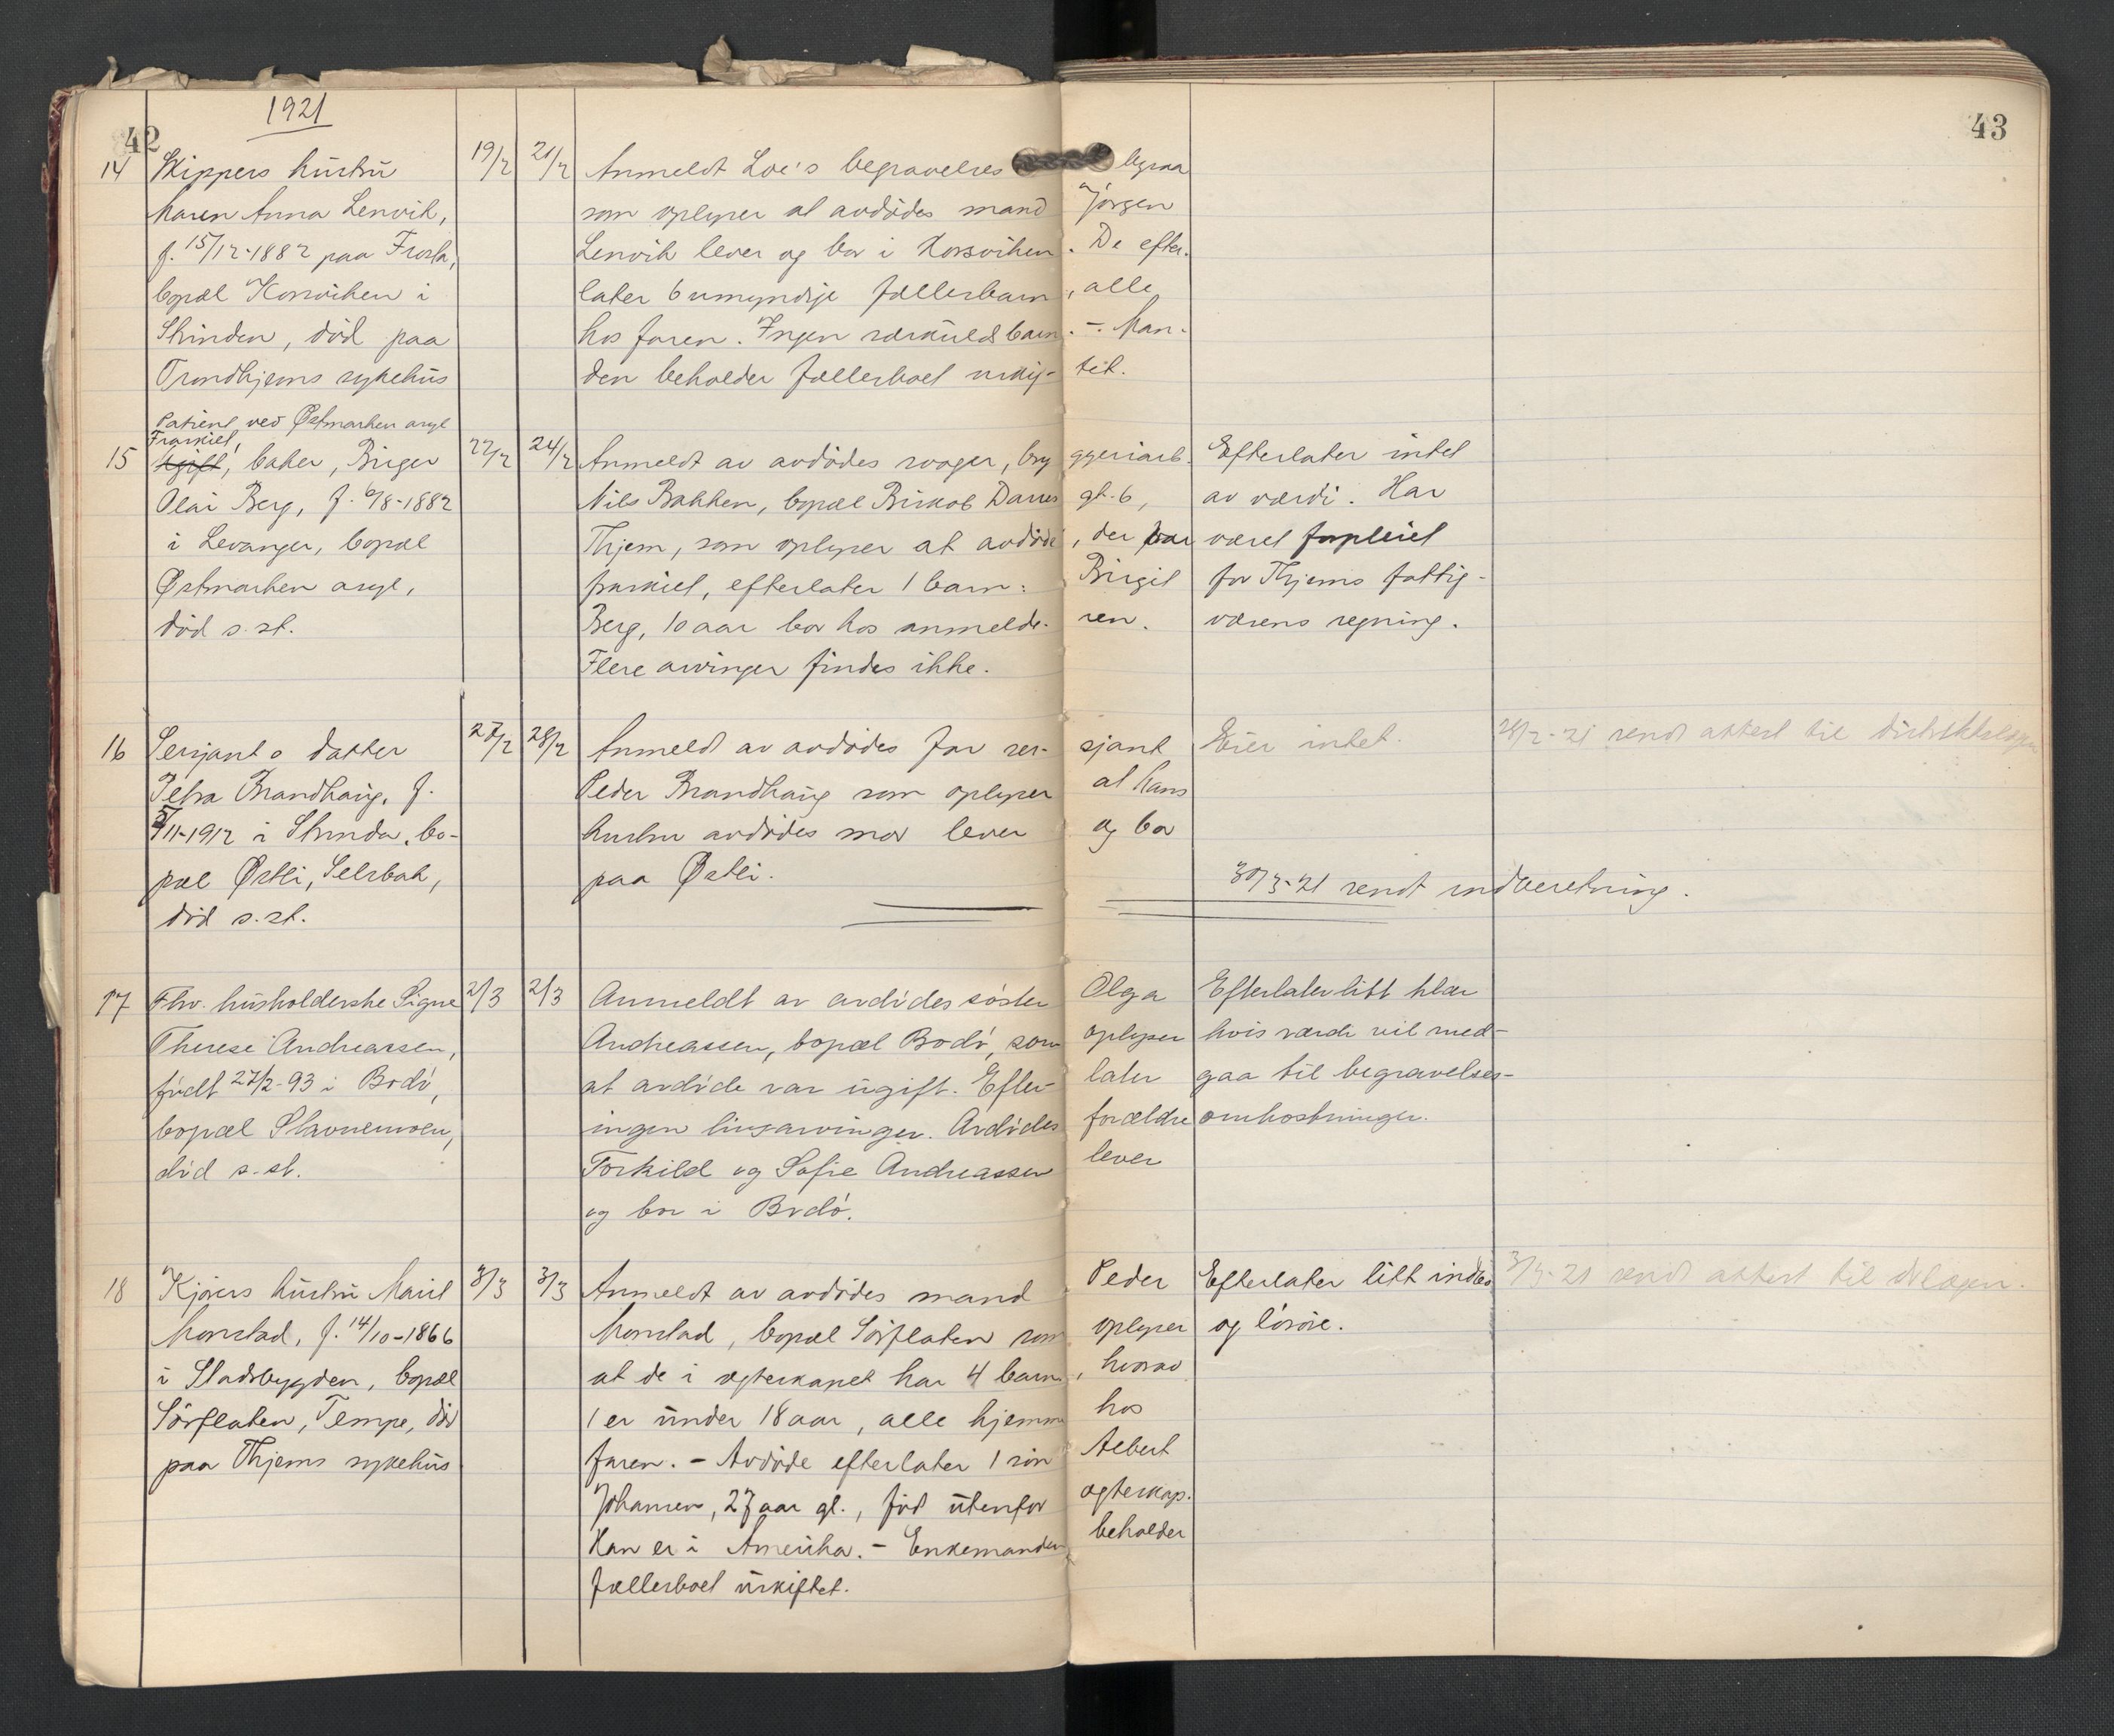 42
1921
43
14 Skippers hustru 19/2 21/2 Anmeldt Loe's begravelsesbyraa
Maren Anna Lenvik, som oplyser at avdødes mand Jørgen
f. 15/12-1882 paa Frosta, Lenvik lever og bor i Korsviken. De efter-
bopæl Korsviken i later 6 umyndije fællesbarn, alle
Strinden, død paa hos faren. Ingen særkuldsbarn. -. Man-
Trondhjems sykehus den beholder fællesboet uskif- tet.
Patient ved Østmarken asyl
Fraskilt,
15 Ugift, baker, Birger 22/2 24/2 Anmeldt av avdødes svoger, bryggeriarb. Efterlater intet
Olai Berg, f. 6/8-1882 Nils Bakken, bopæl Biskop Darres gt. 6, av værdi. Har
i Levanger, bopæl Thjem, som oplyser at avdøde, der var været forpleiet
Østmarken asyl, fraskilt, efterlater 1 barn: Birgit for Thjems fattig-
død s. st. Berg, 10 aar bor hos anmelderen. væsens regning.
Flere arvinger findes ikke.
16 Serjants datter 27/2 28/2 Anmeldt av avdødes far ser- sjant Eier intet. 28/2-21 sendt attest til distriktslægen
Petra Brandhaug, f. Peder Brandhaug som oplyser at hans
5/11-1912 i Strinda, bo- hustru avdødes mor lever og bor
pæl Østli, Selsbak, paa Østli. 30/3-21 sendt indberetning.
død s. st.
17 Fhv. husholderske Signe 2/3 2/3 Anmeldt av avdødes søster Olga Efterlater litt klær
Therese Andreassen, Andreassen, bopæl Bodø, som oplyser hvis værdi vil med-
født 27/2-93 i Bodø, at avdøde var ugift. Efter- later gaa til begravelses-
bopæl Stavnemoen, ingen livsarvinger. Avdødes forældre omkostninger.
død s. st. Torkild og Sofie Andreassen lever
og bor i Bodø.
18 Kjørers hustru Marit 3/3 3/3 Anmeldt av avdødes mand Peder Efterlater litt indbo 3/3-21 sendt attest til dlægen.
Monstad, f. 14/10-1866 Monstad, bopæl Sörflaten som oplyser og løsøre.
i Stadsbygden, bopæl at de i ægteskapet har 4 barn, hvorav
Sörflaten, Tempe, død 1 er under 18 aar, alle hjemme hos
paa Thjems sykehus faren. - Avdøde efterlater 1 søn Albert
Johansen, 27 aar gl., født utenfor ægteskap.
Han er i Amerika. - Enkemanden beholder
fællesboet uskiftet.